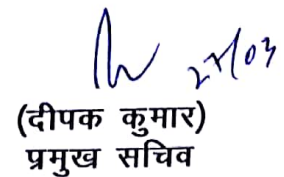 27/03
(दीपक कुमार)
प्रमुख सचिव